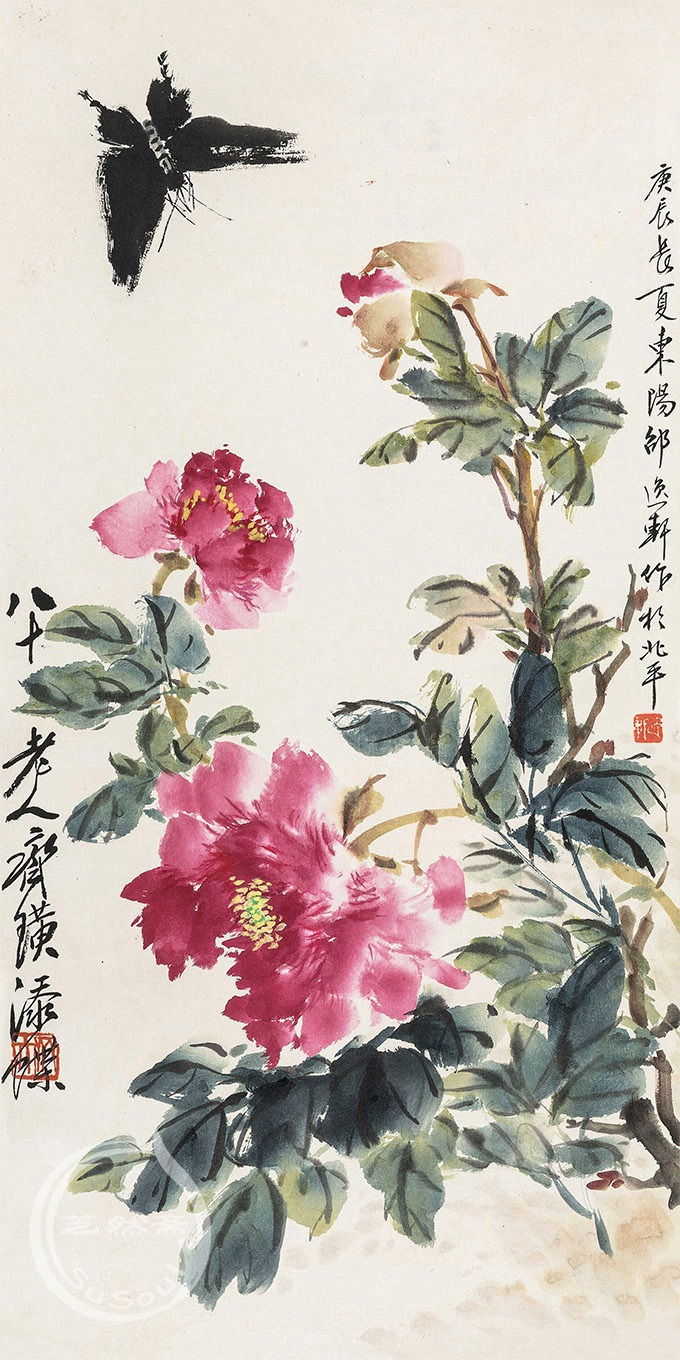 庚辰長夏東陽邵逸軒作於北平
八十老人齊璜添蝶
艺然斋
SuSou